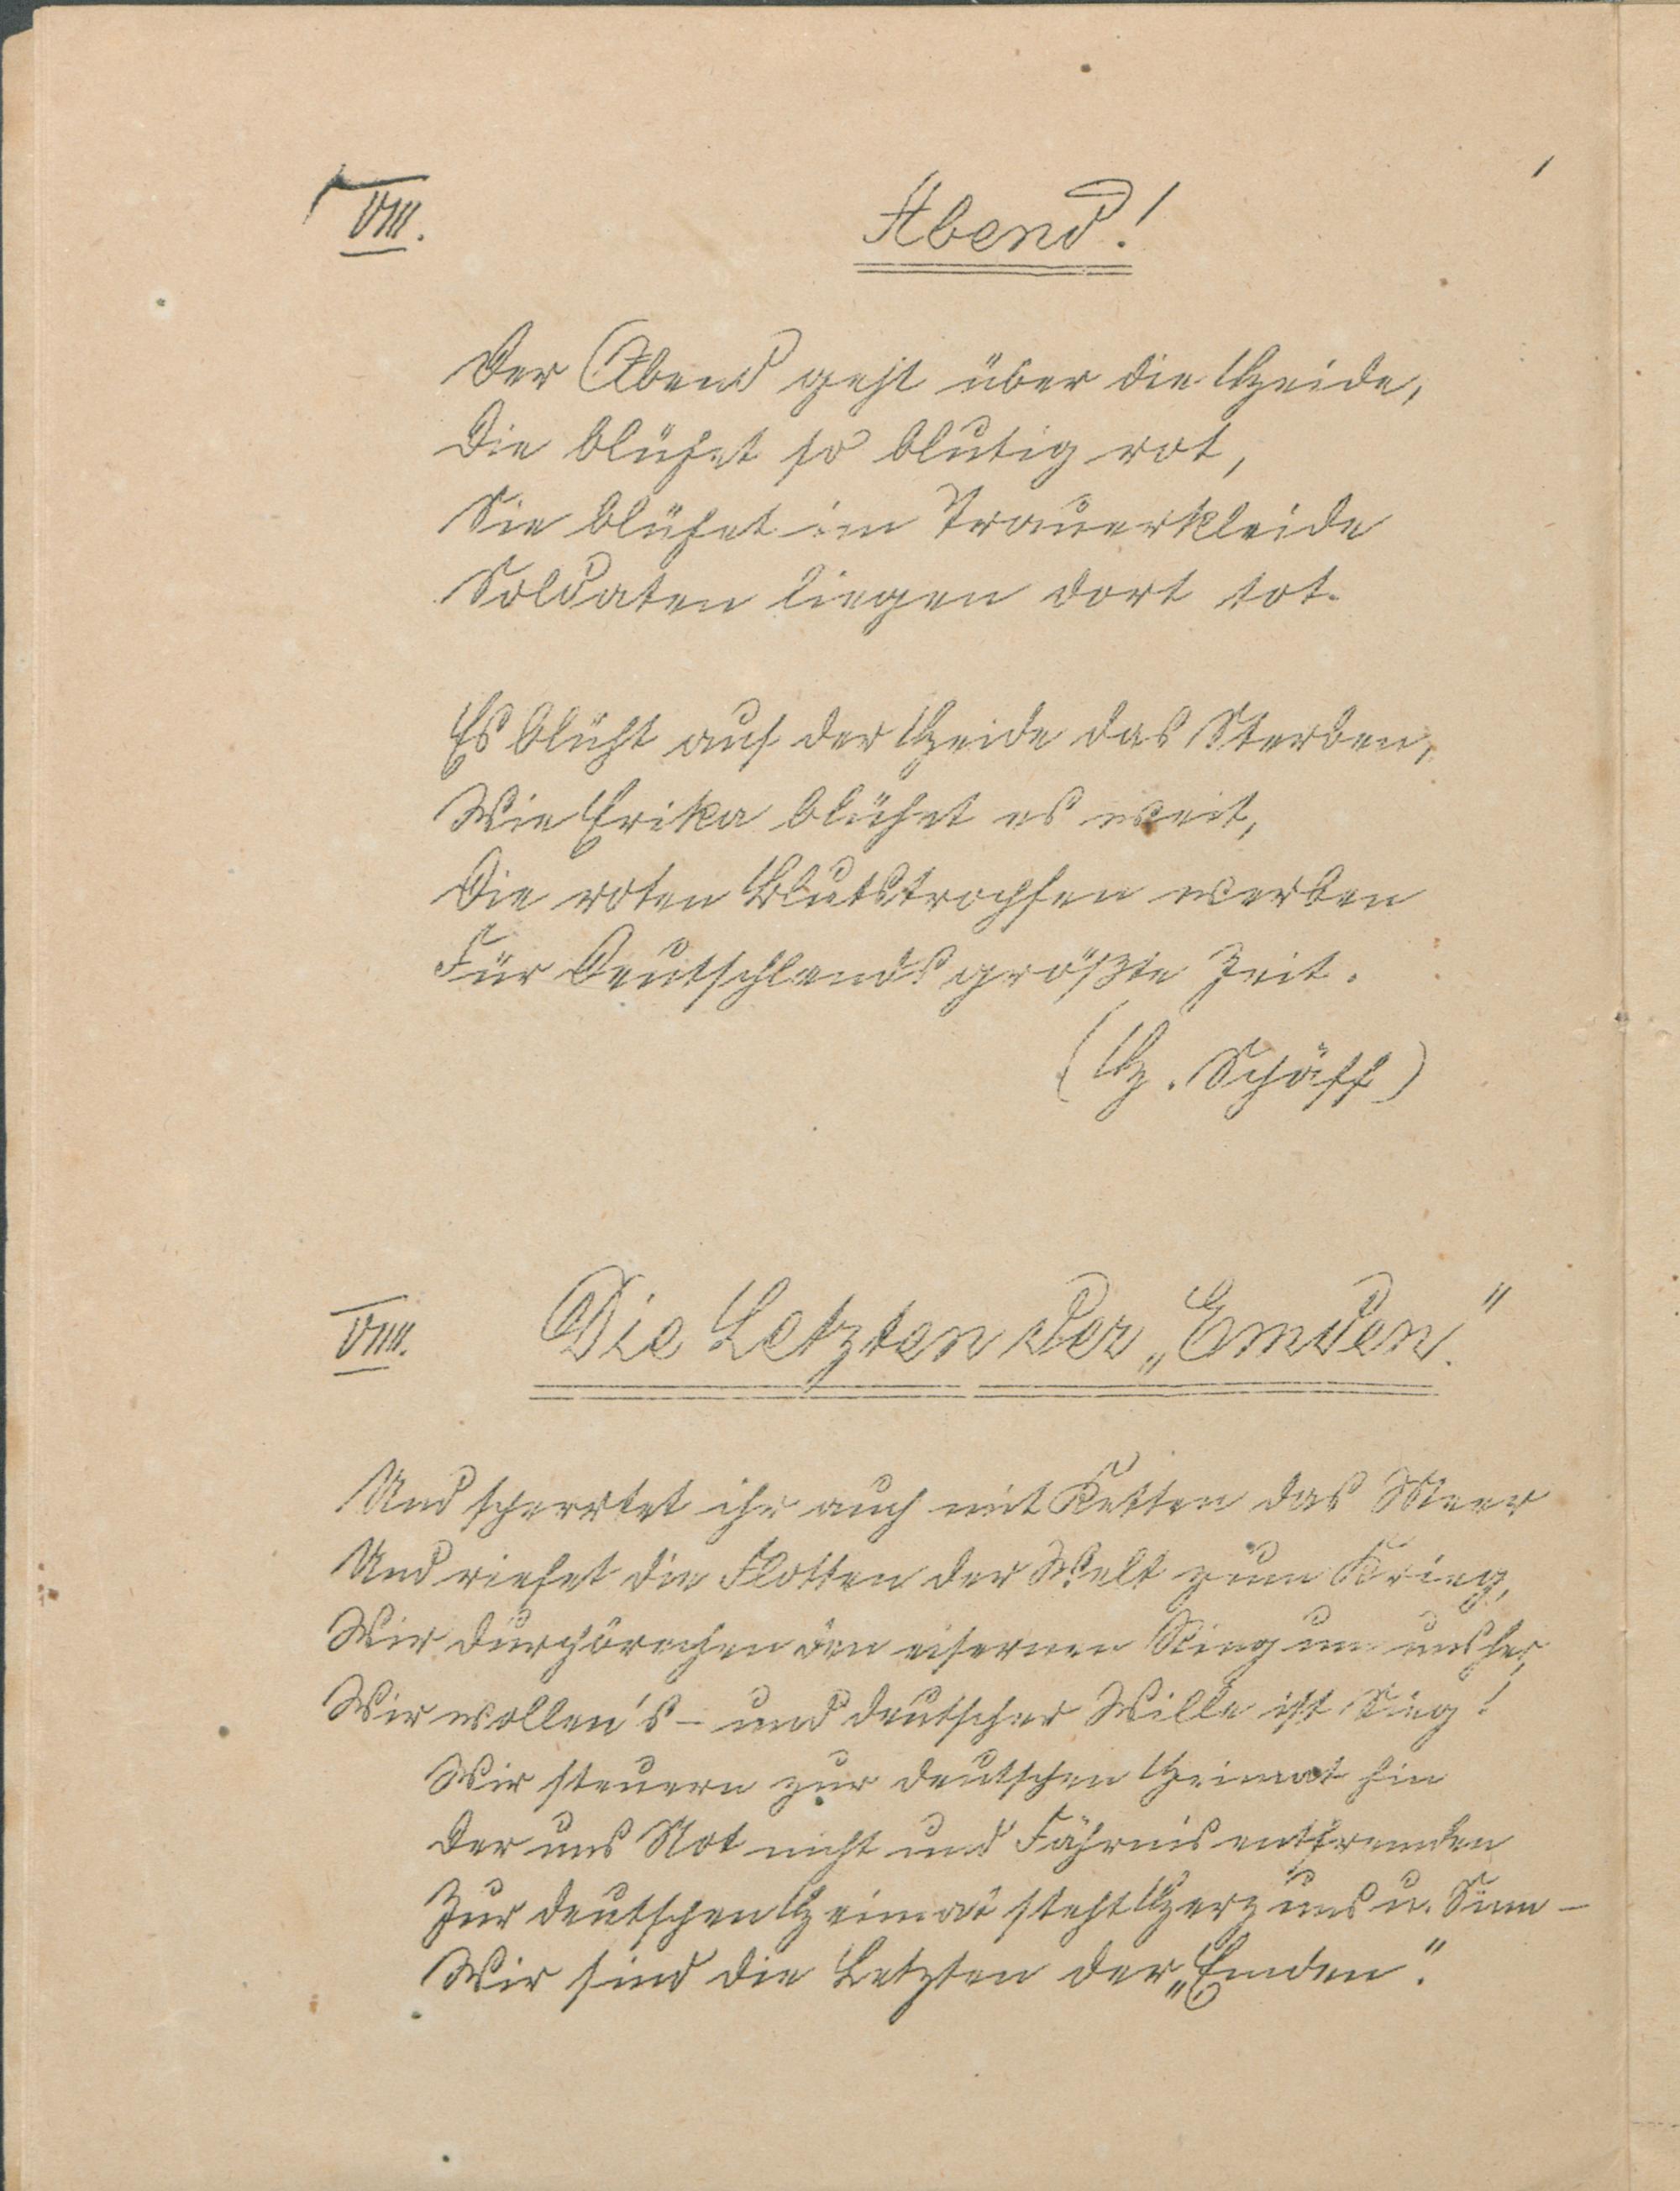 VIII.
Abend!
Der Abend geht über die Heide,
Die blühet so blutig rot,
Sie blühet im Trauerkleide
Soldaten liegen dort tot.
Es blüht auf der Heide das Sterben,
Wie Erika blühet es weit,
Die roten Blutstropfen werben
Für Deutschlands größte Zeit.
(H. Schäff)
VIIII.
Die Letzten der „Emden."
Und sperrtet ihr auch mit Ketten das Meer
Und riefet die Flotten der Welt zum Krieg,
Wir durchbrechen den eisernen Ring um uns her,
Wir wollen's – und deutscher Wille ist Sieg!
Wir steuern zur deutschen Heimat hin
Der uns Not nicht und Fährnis entfremden
Zur deutschen Heimat steht Herz uns u. Sinn –
Wir sind die Letzten der „Emden."